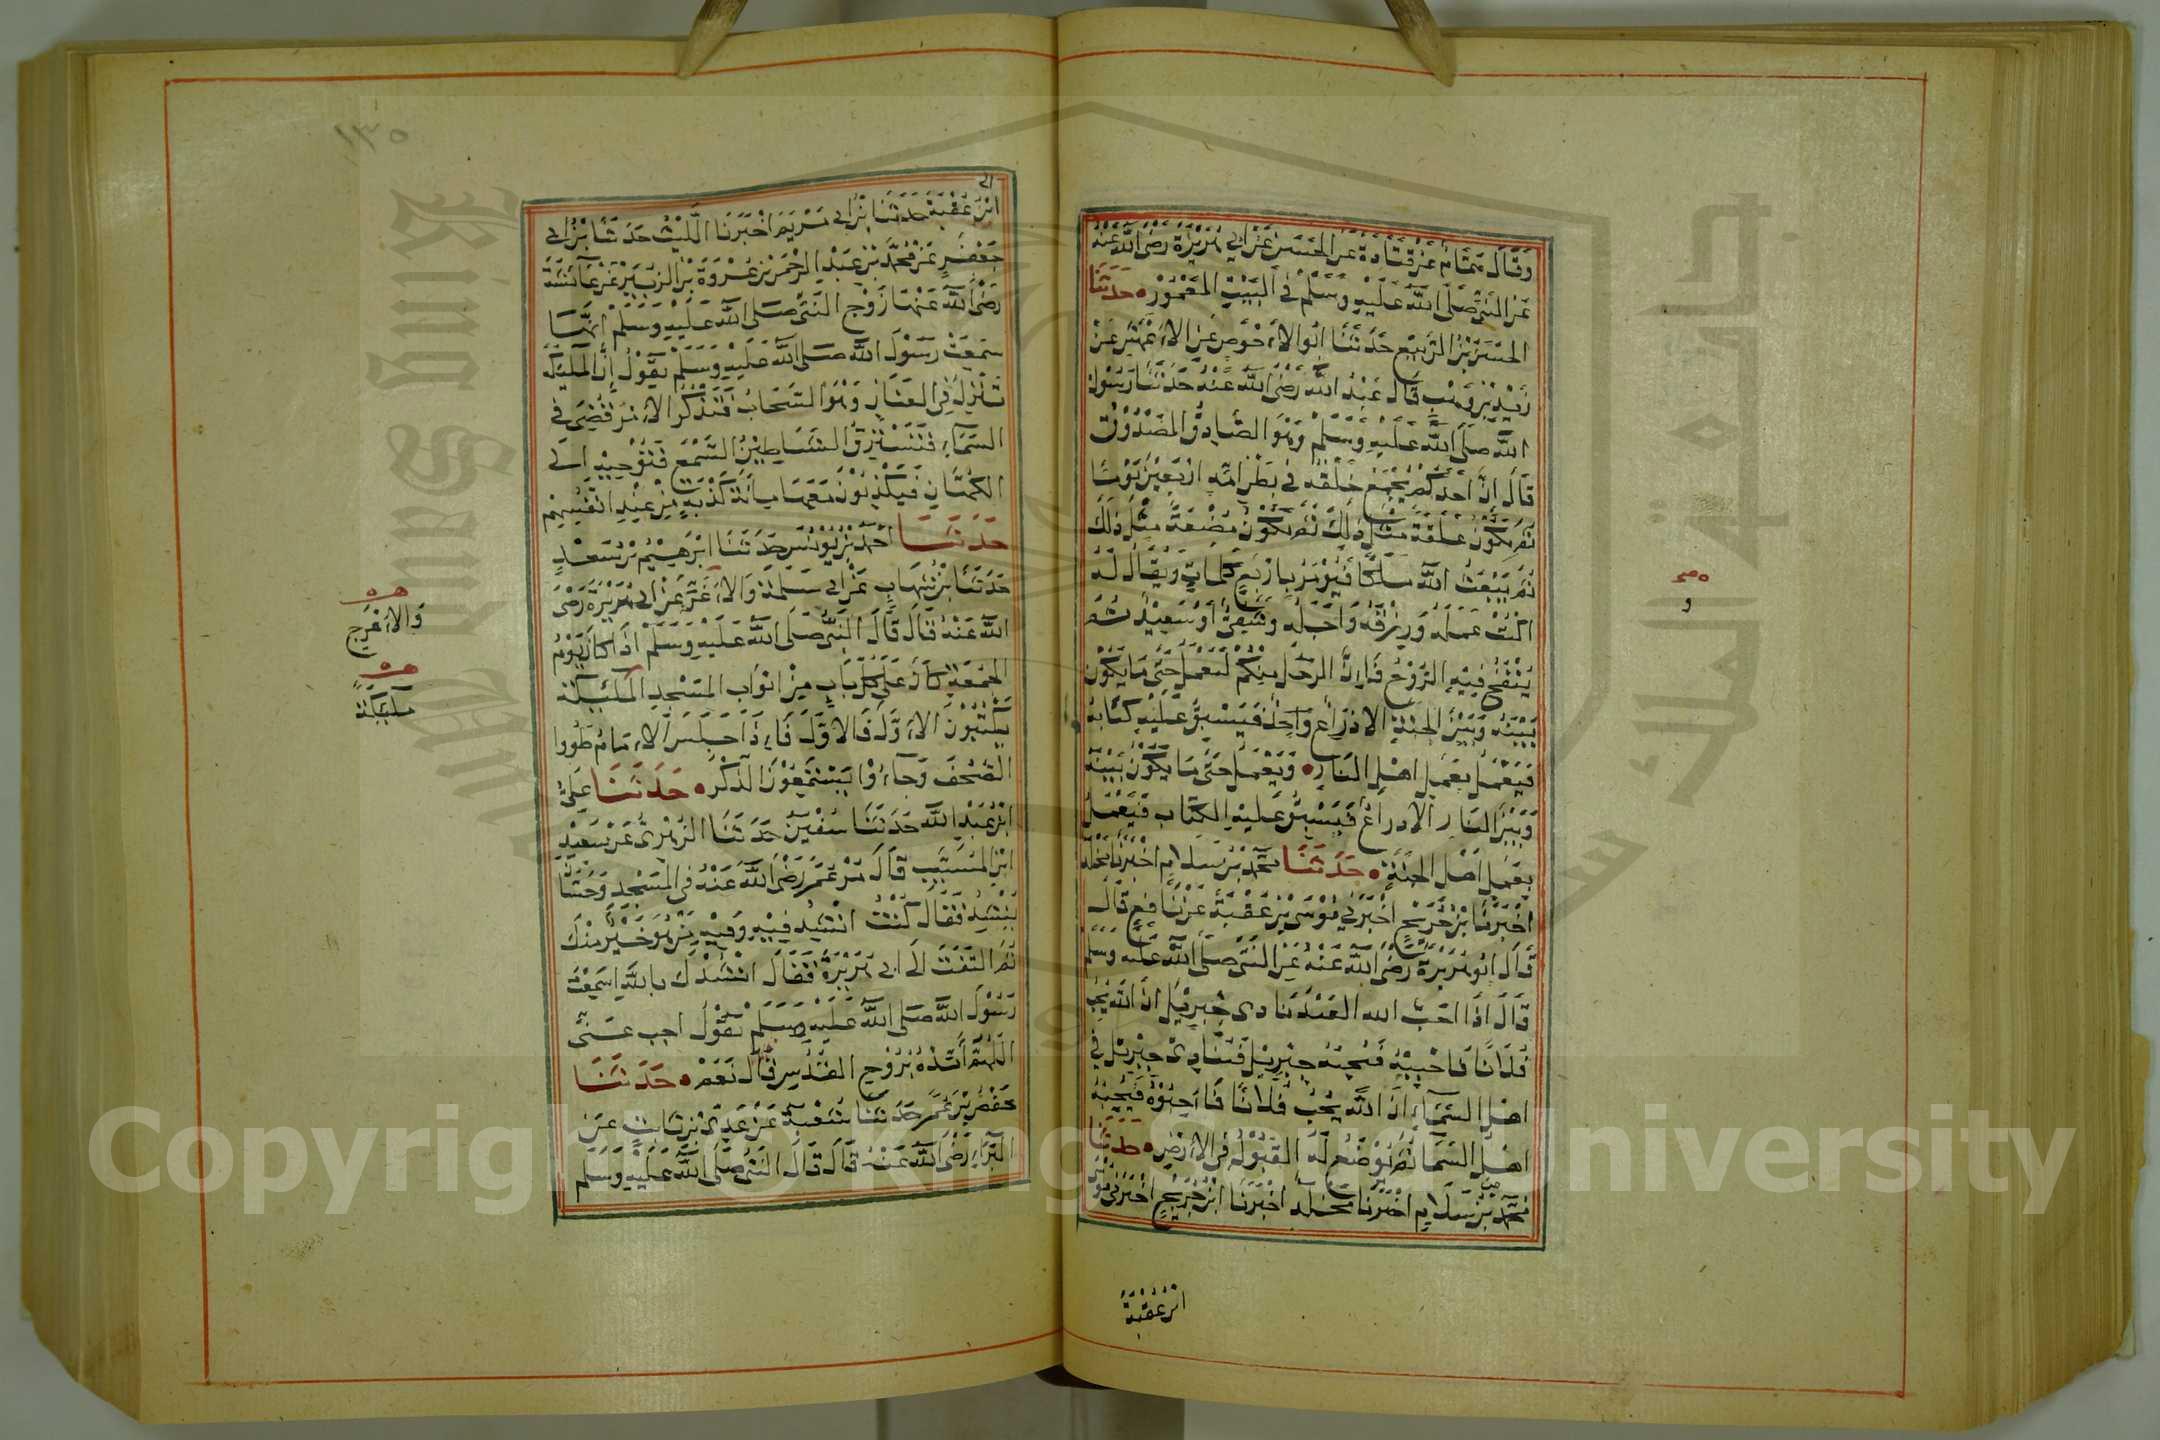 وَقَالَ هَمَّامٌ عَنْ قَتَادَةَ عَنِ الحَسَنِ عَنْ اَبِي هُرَيْرَةَ رَضِيَ اللَّهُ عَنْهُ
عَنِ النَّبِيِّ صَلَّى اللَّهُ عَلَيْهِ وَسَلَّمَ فِي الْبَيْتِ الْمَعْمُورِ حَدَّثَنَا
الحَسَنُ بْنُ الرَّبِيعِ حَدَّثَنَا اَبُو الاَحْوَصِ عَنِ الاَعْمَشِ عَنْ
زَيْدِ بْنِ وَهْبٍ قَالَ عَبْدُ اللَّهِ رَضِيَ اللَّهُ عَنْهُ حَدَّثَنَا رَسُولُ
اللَّهِ صَلَّى اللَّهُ عَلَيْهِ وَسَلَّمَ وَهُوَ الصَّادِقُ الْمَصْدُوقُ
قَالَ اِنَّ اَحَدَكُمْ يُجْمَعُ خَلْقُهُ فِي بَطْنِ اُمِّهِ اَرْبَعِيْنَ يَوْمًا
ثُمَّ يَكُوْنُ عَلَقَةً مِثْلَ ذٰلِكَ ثُمَّ يَكُوْنُ مُضْغَةً مِثْلَ ذٰلِكَ
ثُمَّ يَبْعَثُ اللَّهُ مَلَكًا فَيُؤْمَرُ بِاَرْبَعِ كَلِمَاتٍ وَيُقَالُ لَهُ
اكْتُبْ عَمَلَهُ وَرِزْقَهُ وَاَجَلَهُ وَشَقِيٌّ اَوْ سَعِيْدٌ ثُمَّ
يُنْفَخُ فِيْهِ الرُّوْحُ فَاِنَّ الرَّجُلَ مِنْكُمْ لَيَعْمَلُ حَتَّى مَا يَكُوْنُ
بَيْنَهُ وَبَيْنَ الجَنَّةِ اِلَّا ذِرَاعٌ وَاحِدٌ فَيَسْبِقُ عَلَيْهِ كِتَابُهُ
فَيَعْمَلُ بِعَمَلِ اَهْلِ النَّارِ وَيَعْمَلُ حَتَّى مَا يَكُوْنُ بَيْنَهُ
وَبَيْنَ النَّارِ اِلَّا ذِرَاعٌ فَيَسْبِقُ عَلَيْهِ الكِتَابُ فَيَعْمَلُ
بِعَمَلِ اَهْلِ الجَنَّةِ حَدَّثَنَا مُحَمَّدُ بْنُ سَلَامٍ اَخْبَرَنَا مَخْلَدٌ
اَخْبَرَنَا بْنُ جُرَيْجٍ اَخْبَرَنِي مُوْسَى بْنُ عُقْبَةَ عَنْ نَافِعٍ قَالَ
قَالَ اَبُو هُرَيْرَةَ رَضِيَ اللَّهُ عَنْهُ عَنِ النَّبِيِّ صَلَّى اللَّهُ عَلَيْهِ وَسَلَّمَ
قَالَ اِذَا اَحَبَّ الله العَبْدَ نَادى جِبْرِيْلَ اِنَّ اللَّهَ يُحِبُّ
فُلَانًا فَاَحْبِبْهُ فَيُحِبُّهُ جِبْرِيْلُ فَيُنَادِي جِبْرِيْلُ فِي
اَهْلِ السَّمَاءِ اِنَّ اللَّهَ يُحِبُّ فُلَانًا فَاَحِبُّوْهُ فَيُحِبُّهُ
اَهْلُ السَّمَا ثُمَّ يُوْضَعُ لَهُ القَبُوْلُ فِي الاَرْضِ حَدَّثَنَا
مُحَمَّدُ بْنُ سَلَامٍ اَخْبَرَنَا مَخْلَدٌ اَخْبَرَنَا ابْنُ جُرَيْجٍ اَخْبَرَنِي
ابْنُ عُقْبَةَ
و
١٣٥
ابْنُ عُقْبَةَ حَدَّثَنَا بْنُ اَبِي مَرْيَمَ اَخْبَرَنَا اللَّيْثُ حَدَثَنَا بْنُ اَبِي
جَعْفَرٍ عَنْ مُحَمَّدِ بْنِ عَبْدِ الرَّحْمَنِ عَنْ عُرْوَةَ بْنِ الزُّبَيْرِ عَنْ عَائِشَةَ
رَضِيَ اللَّهُ عَنْهَا زَوْجِ النَّبِيِّ صَلَّى اللَّهُ عَلَيْهِ وَسَلَّمَ اَنَّهَا
سَمِعَتْ رَسُوْلَ اللَّهِ صَلَّى اللَّهُ عَلَيْهِ وَسَلَّمَ يَقُوْلُ اِنَّ الْمَلَئِكَةَ
تَنْزِلُ فِي العَنَانِ وَهُوَ السَّحَابُ فَتَذْكُرُ الاَمْرَ قُضِيَ فِي
السَّمَاءِ فَتَسْتَرِقُ الشَّيَاطِيْنُ السَّمْعَ فَتُوْحِيْهِ اِلَى
الكُهَّانِ فَيَكْذِبُوْنَ مَعَهَا مِائَةَ كَذْبَةٍ مِنْ عِنْدِ اَنْفُسِهِمْ
حَدَّثَنَا اَحْمَدُ بْنُ يُوْنُسَ حَدَّثَنَا ابْرَهِيْمُ بْنُ سَعْدٍ
حَدَّثَنَا بْنُ شِهَابٍ عَنْ اَبِي سَلَمَةَ وَالاَغَرِّ عَنْ اَبِي هُرَيْرَةَ رَضِيَ
اللَّهُ عَنْهُ قَالَ قَالَ النَّبِيُّ صَلَّى اللَّهُ عَلَيْهِ وَسَلَّمَ اِذَا كَانَ يَوْمُ
الجُمُعَةِ كَانَ عَلَى كُلِّ بَابٍ مِنْ اَبْوَابِ المَسْجِدِ المَلَئِكَةُ
يَكْتُبُوْنَ الاَوَّلَ فَالاَوَّلَ فَاِذَا جَلَسَ الاِمَامُ طَوَوا
الصُّحُفَ وَجَاءُوْا يَسْتَمِعُوْنَ الذِّكْرَ حَدَّثَنَا عَلِيُّ
ابْنُ عَبْدِ اللَّهِ حَدَّثَنَا سُفْيَنُ حَدَّثَنَا الزُّهْرِيُّ عَنْ سَعِيْدِ
ابْنِ المُسَيَّبِ قَالَ مَرَّ عُمَرُ رَضِيَ اللَّهُ عَنْهُ فِي المَسْجِدِ وَحَسَّانُ
يُنْشِدُ فَقَالَ كُنْتُ اُنْشِدُ فِيْهِ وَفِيْهِ مَنْ هُوَ خَيْرٌ مِنْكَ
ثُمَّ التَفَتَ اِلَى اَبِي هُرَيْرَةَ فَقَالَ اَنْشُدُكَ بِاللَّهِ اَسَمِعْتَ
رَسُوْلَ اللَّهِ صَلَّى اللَّهُ عَلَيْهِ وَسَلَّمَ يَقُوْلُ اَجِبْ عَنِّي
اللَّهُمَّ اَيِّدْهُ بِرُوْحِ القُدُسِ قَالَ نَعَمْ حَدَّثَنَا
حَفْصُ بْنُ عُمَرَ حَدَّثَنَا شُعْبَةُ عَنْ عَدِيِّ بْنِ ثَابِتٍ عَنِ
البَرَاءِ رَضِيَ اللَّهُ عَنْهُ قَالَ قَالَ النَّبِيُّ صَلَّى اللَّهُ عَلَيْهِ وَسَلَّمَ
وَالاَعْرَجِ
مَلَئِكَةٌ
Copyright © King Saud University
King Saud University
جامعة الملك سعود